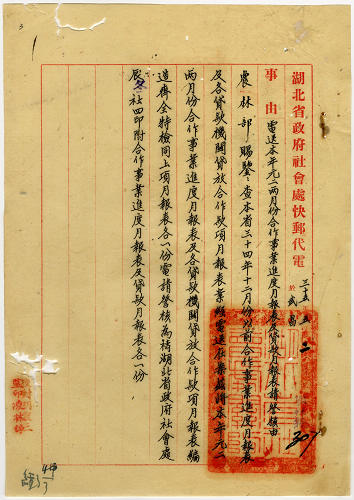 湖北省政府社會處快郵代電
三十五 五 二
於武昌
307
事由 電送本年元二兩月份合作事業進度月報表及貸款月報表請詧核由
農林部賜鑒：查本省三十四年十二月份以前合作事業進度月報表
及各貸款機關貸放合作款項月報表業經電送在案茲將本年元二
兩月份合作事業進度月報表及各貸款機關貸放合作款項月報表編
造齊全特檢同上項月報表各一份電請詧核為禱湖北省政府社會處
社四印附合作事業進度月報表及貸款月報表各一份